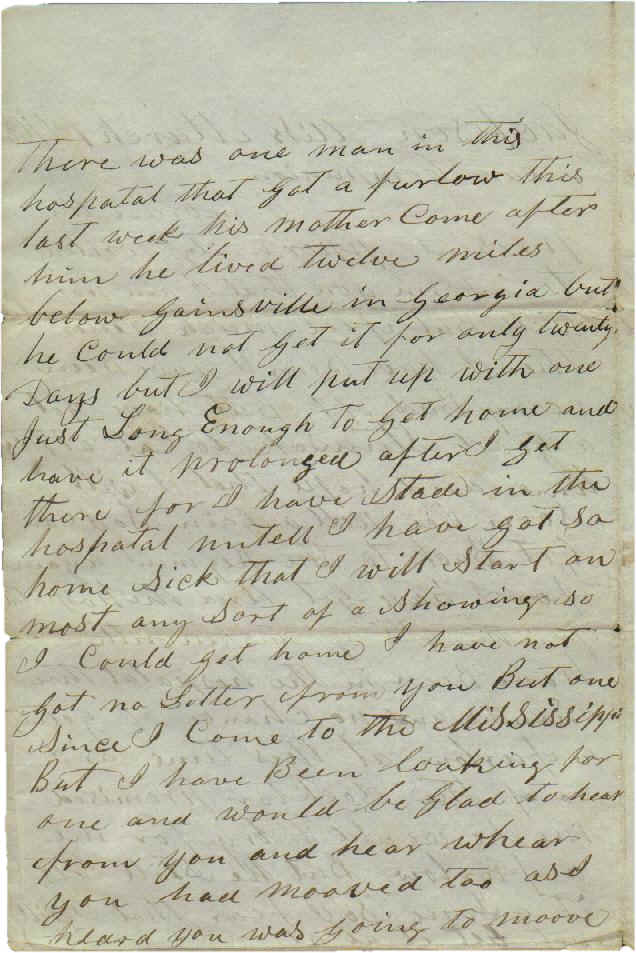 There was one man in this
hospatal that got a furlow this
last week his mother Come after
him he lived twelve miles
below Gainsville in Georgia but
he Could not get it for only twenty
Days but I will put up with one
Just Long Enough to get home and
have it prolonged after I get
there for I have stade in the
hospatal untell I have got so
home sick that I will start on
most any sort of a showing so
I Could get home I have not
got no Letter from you But one
since I Come to the Mississippi
But I have Been looking for
one and would be Glad to hear
from you and hear whear
you had mooved too as I
heard you was going to moove